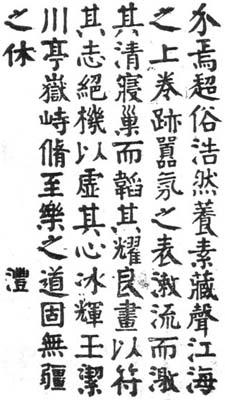 介焉超俗浩然養素藏聲江海
之上卷跡囂氛之表漱流而激
其清寢巢而韜其耀良畫以符
其志絕機以虛其心冰輝玉潔
川亭嶽峙脩至樂之道固無疆
之休 澧